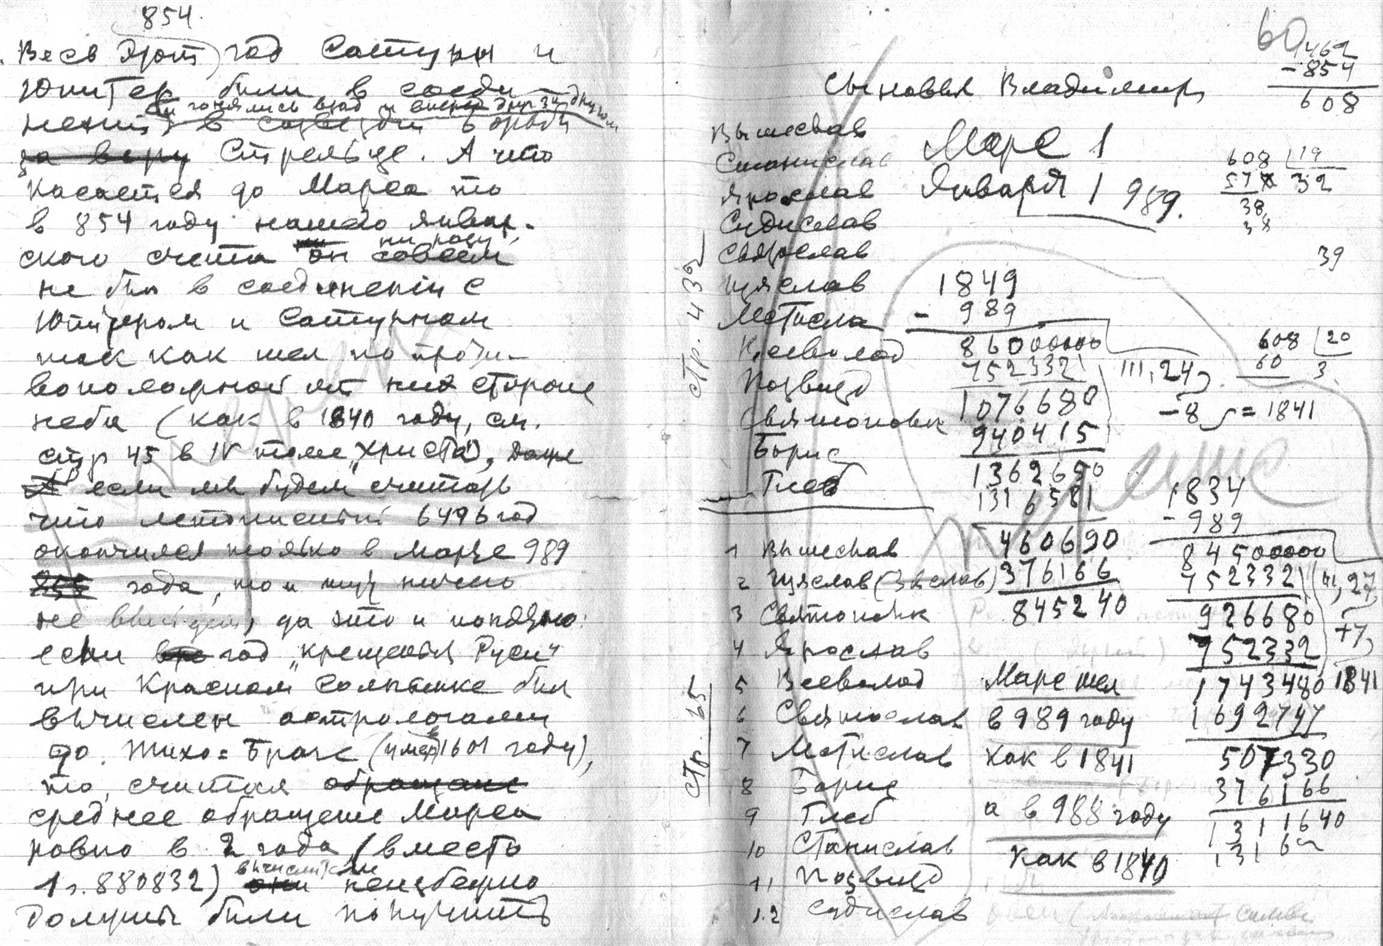 854.
Весь этот год Сатурн и
Юпитер были в соеди-
гонялись взад и вперед друг за другом
нении в созвездии борьбы
за веру Стрельце. А что
касается до Марса то
в 854 году нашего январ-
ни разу
ского счета он совсем
не был в соединении с
Юпитером и Сатурном
так как шел по проти-
воположной от них стороне
неба (как в 1840 году, см.
стр 45 в IV томе "Христа"). Даже
если мы будем считать
что летописный 6496 год
окончился только в Марте 989
года, то и тут ничего
не выйдет, да это и понятно:
если год "крещения Руси"
при Красном Солнышке был
вычислен астрологами
до Тихо-Браге (умер в 1601 году),
то, считая обращение
среднее обращение Марса
ровно в 2 года (вместо
1 г. 880832) вычислители
они неизбежно
должны были получить
60
1462
-854
608
Сыновья Владимира
Вышеслав
Станислав
Ярослав
Судислав
Святослав
Изяслав
Мстислав
Всеволод
Позвизд
Святополк
Борис
Глеб
стр. 432
Марс 1
Января 1 989.
608 19
57 32
38
38
39
1849
- 989
86000000
752332
1076680
940415
1362650
1316581
460690
376166
845240
111,24
-8 = 1841
608 20
60 3
1834
-989
84500000
752332
926680
752332
1743480
1692747
507330
376166
1311640
+7
1841
1 Вышеслав
2 Изяслав (Звслав)
3 Святополк
4 Ярослав
5 Всеволод
6 Святослав
7 Мстислав
8 Борис
9 Глеб
10 Станислав
11 Позвизд
12 Судислав
стр 65
Марс шел
в 989 году
как в 1841
а в 988 году
как в 1840